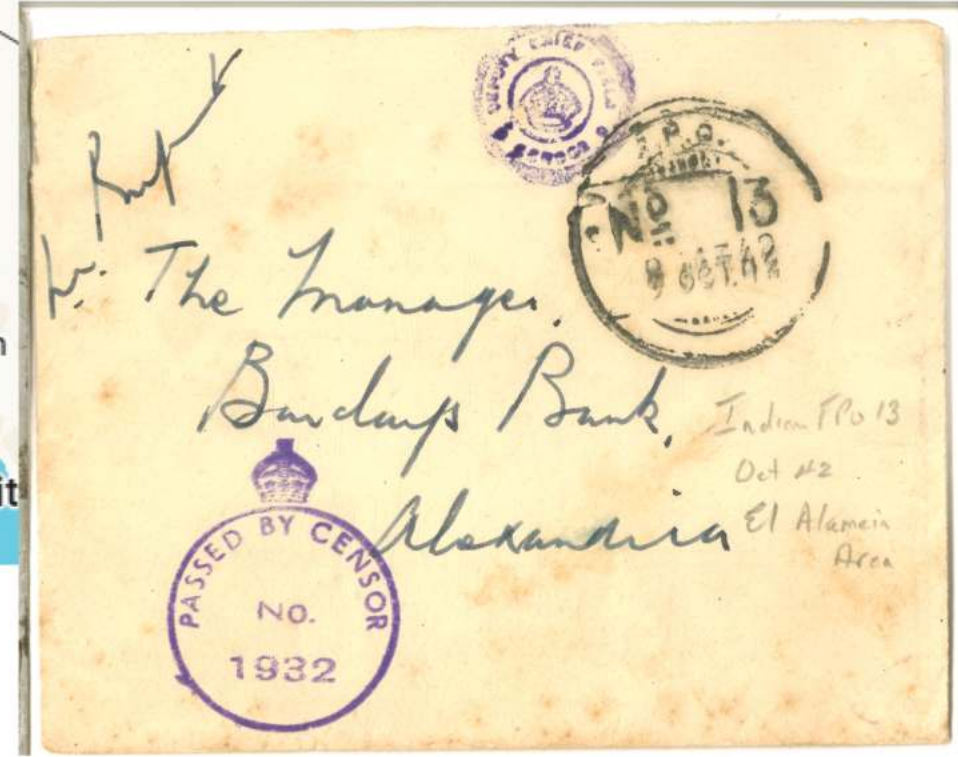 DEPUTY CHIEF FIELD
CENSOR
F.P.O.
No. 13
9 OCT. 42
The Manager.
Barclays Bank,
Alexandria
Indian FPO 13
Oct 42
El Alamein
Area
PASSED BY CENSOR
No.
1932
it
n